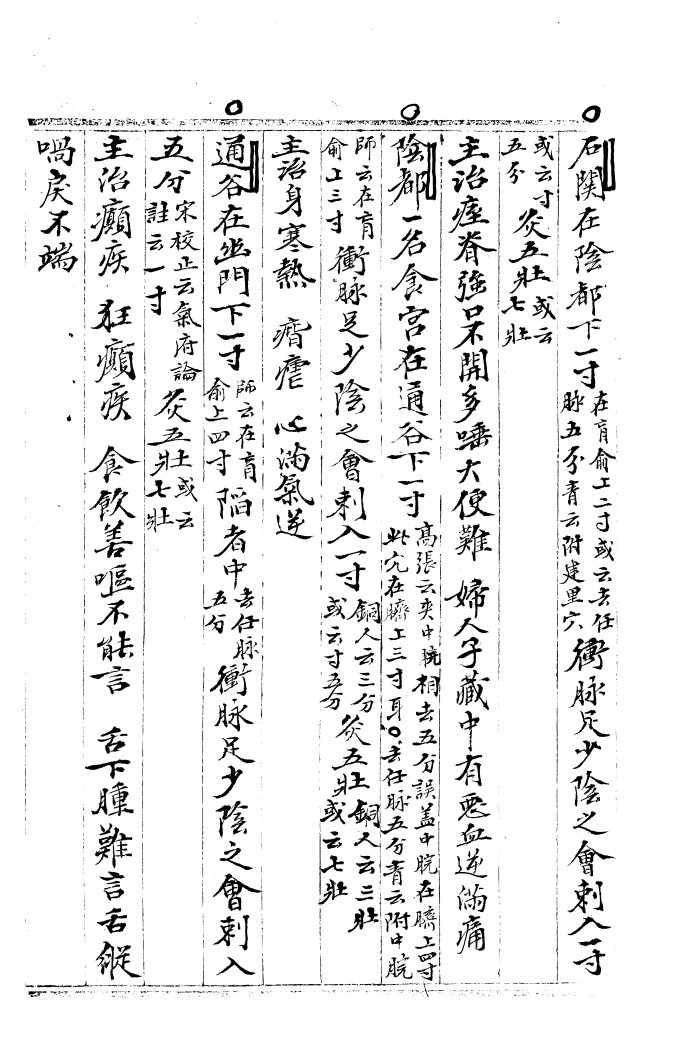 石関在陰都下一寸在肓俞上二寸或云去任脉五分青云附建里穴衝脉足少陰之會刺入一寸
或云寸五分灸五壯或云七壯
主治痓脊強口不開多唾大便難 婦人子藏中有惡血逆滿痛
陰都一名食宮在通谷下一寸高張云夾中脘相去五分誤盖中脘在臍上四寸此穴在臍上三寸耳○去任脉五分青云附中脘
師云在肓俞上三寸衝脉足少陰之會刺入一寸銅人云三分或云寸五分灸五壯銅人云三壯或云七壯
主治身寒熱 痟瘧 心滿氣逆
通谷在幽門下一寸師云在肓俞上四寸陷者中去任脉五分衝脉足少陰之會刺入
五分宋校正云氣府論註云一寸灸五壯或云七壯
主治癲疾 狂癲疾 食飲善嘔不能言 舌下腫難言舌縦
喎戾不端